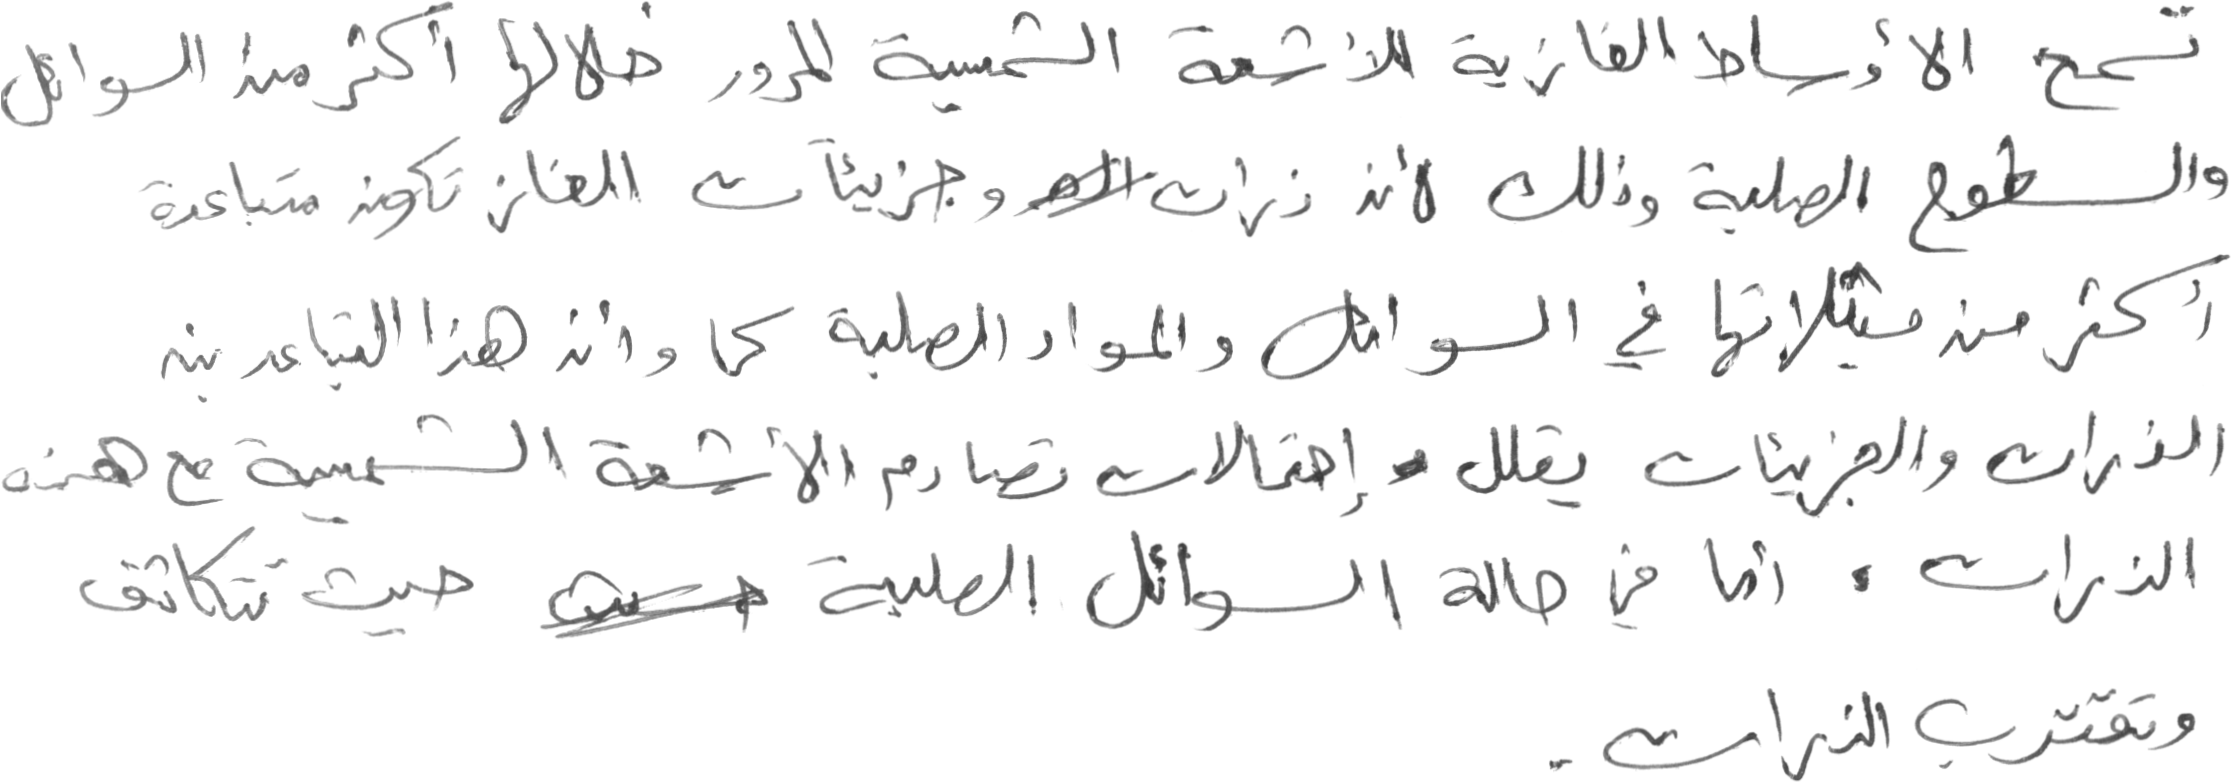 تسمح الأوساط الغازية للأشعة الشمسية المرور خلالها أكثر من السوائل
والسطوح الصلبة وذلك لأن ذرات وجزيئات الغاز تكون متباعدة
أكثر من مثيلاتها في السوائل والمواد الصلبة كما وأن هذا التباعد بين
الذرات والجزيئات يقلل إحتمالات تصادم الأشعة الشمسية مع هذه
الذرات . أما في حالة السوائل الصلبة حيث تتكاثف
وتقترب الذرات .